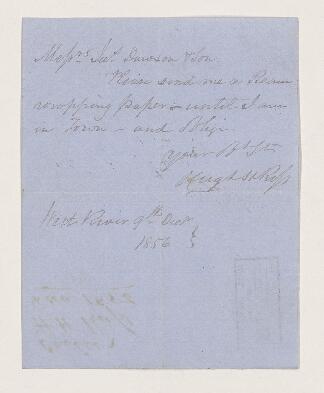 Messrs Jas Dawson & Son
Please send me a Ream
wrapping paper - until I am
in Town - and Oblige
Your Obt St
Hugh Ross
West River 9th Decr
1856